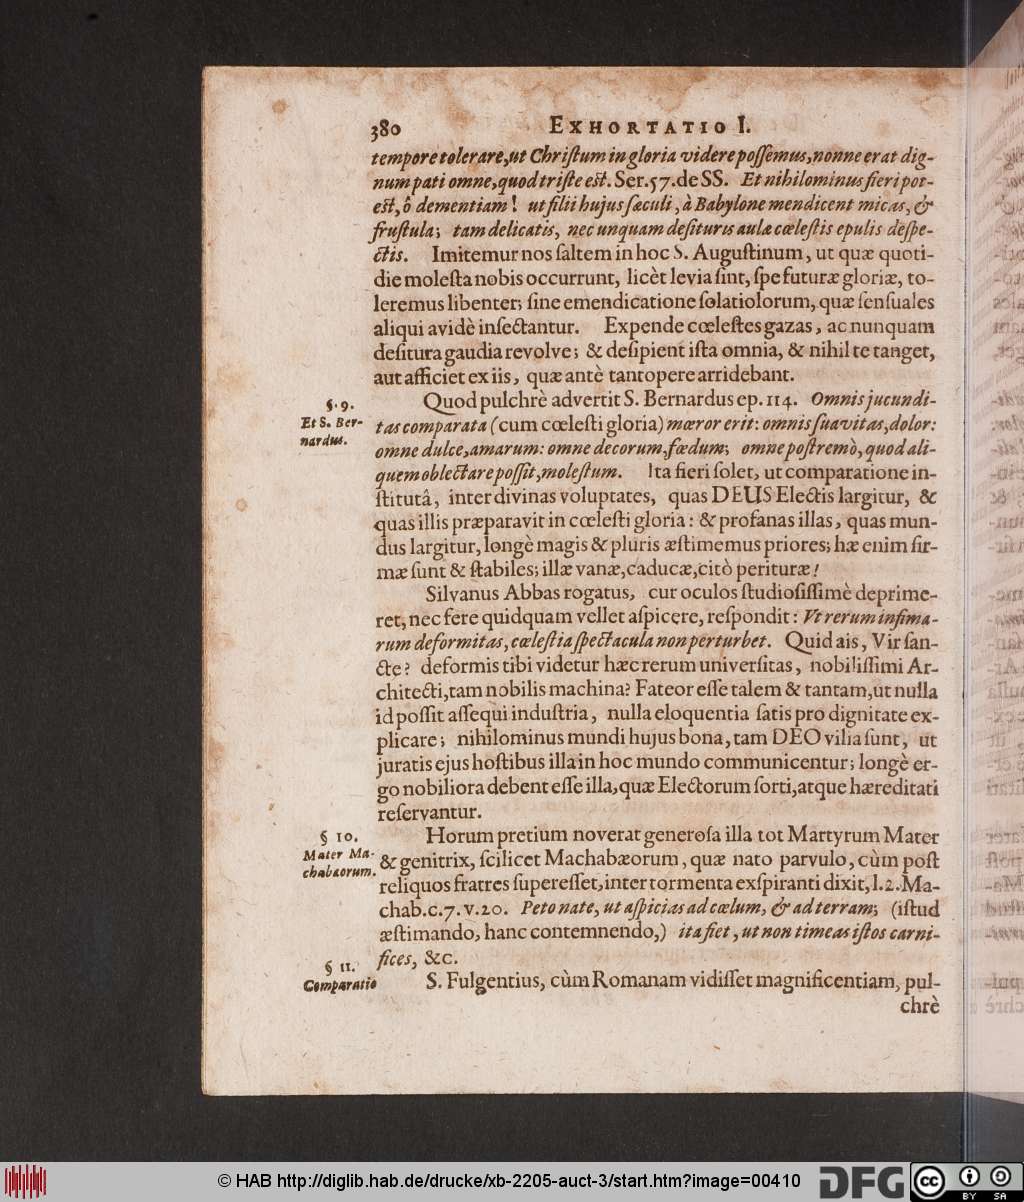 380 EXHORTATIO I.
tempore tolerare, ut Chriſtum in gloria videre poſſemus, nonne erat dig-
num pati omne, quod triſte eſt. Ser. 57. de SS. Et nihilominus fieri pot-
eſt, ô dementiam! ut filii hujus ſæculi, à Babylone mendicent micas, &
fruſtula; tam delicatis, nec unquam deſituris aulæ cœleſtis epulis deſpe-
ctis. Imitemur nos ſaltem in hoc S. Auguſtinum, ut quæ quoti-
die moleſta nobis occurrunt, licèt levia ſint, ſpe futuræ gloriæ, to-
leremus libenter; ſine emendicatione ſolatiolorum, quæ ſenſuales
aliqui avidè inſectantur. Expende cœleſtes gazas, ac nunquam
deſitura gaudia revolve; & deſipient iſta omnia, & nihil te tanget,
aut afficiet ex iis, quæ antè tantopere arridebant.
§. 9.
Et S. Ber-
nardus.
Quod pulchrè advertit S. Bernardus ep. 114. Omnis jucundi-
tas comparata (cum cœleſti gloria) mœror erit: omnis ſuavitas, dolor:
omne dulce, amarum: omne decorum, fœdum; omne poſtremò, quod ali-
quem oblectare poſſit, moleſtum. Ita fieri ſolet, ut comparatione in-
ſtitutâ, inter divinas voluptates, quas DEUS Electis largitur, &
quas illis præparavit in cœleſti gloria: & profanas illas, quas mun-
dus largitur, longè magis & pluris æſtimemus priores; hæ enim fir-
mæ ſunt & ſtabiles; illæ vanæ, caducæ, citò perituræ!
Silvanus Abbas rogatus, cur oculos ſtudioſiſſimè deprime-
ret, nec fere quidquam vellet aſpicere, reſpondit: Vt rerum infima-
rum deformitas, cœleſtia ſpectacula non perturbet. Quid ais, Vir ſan-
cte? deformis tibi videtur hæc rerum univerſitas, nobiliſſimi Ar-
chitecti, tam nobilis machina? Fateor eſſe talem & tantam, ut nulla
id poſſit aſſequi induſtria, nulla eloquentia ſatis pro dignitate ex-
plicare; nihilominus mundi hujus bona, tam DEO vilia ſunt, ut
juratis ejus hoſtibus illa in hoc mundo communicentur; longè er-
go nobiliora debent eſſe illa, quæ Electorum ſorti, atque hæreditati
reſervantur.
§ 10.
Mater Ma-
chabæorum.
Horum pretium noverat generoſa illa tot Martyrum Mater
& genitrix, ſcilicet Machabæorum, quæ nato parvulo, cùm poſt
reliquos fratres ſupereſſet, inter tormenta exſpiranti dixit, l. 2. Ma-
chab. c. 7. v. 20. Peto nate, ut aſpicias ad cœlum, & ad terram; (iſtud
æſtimando, hanc contemnendo,) ita fiet, ut non timeas iſtos carni-
fices, &c.
§ 11.
Comparatio
S. Fulgentius, cùm Romanam vidiſſet magnificentiam, pul-
chrè
© HAB http://diglib.hab.de/drucke/xb-2205-auct-3/start.htm?image=00410
DFG cc BY SA